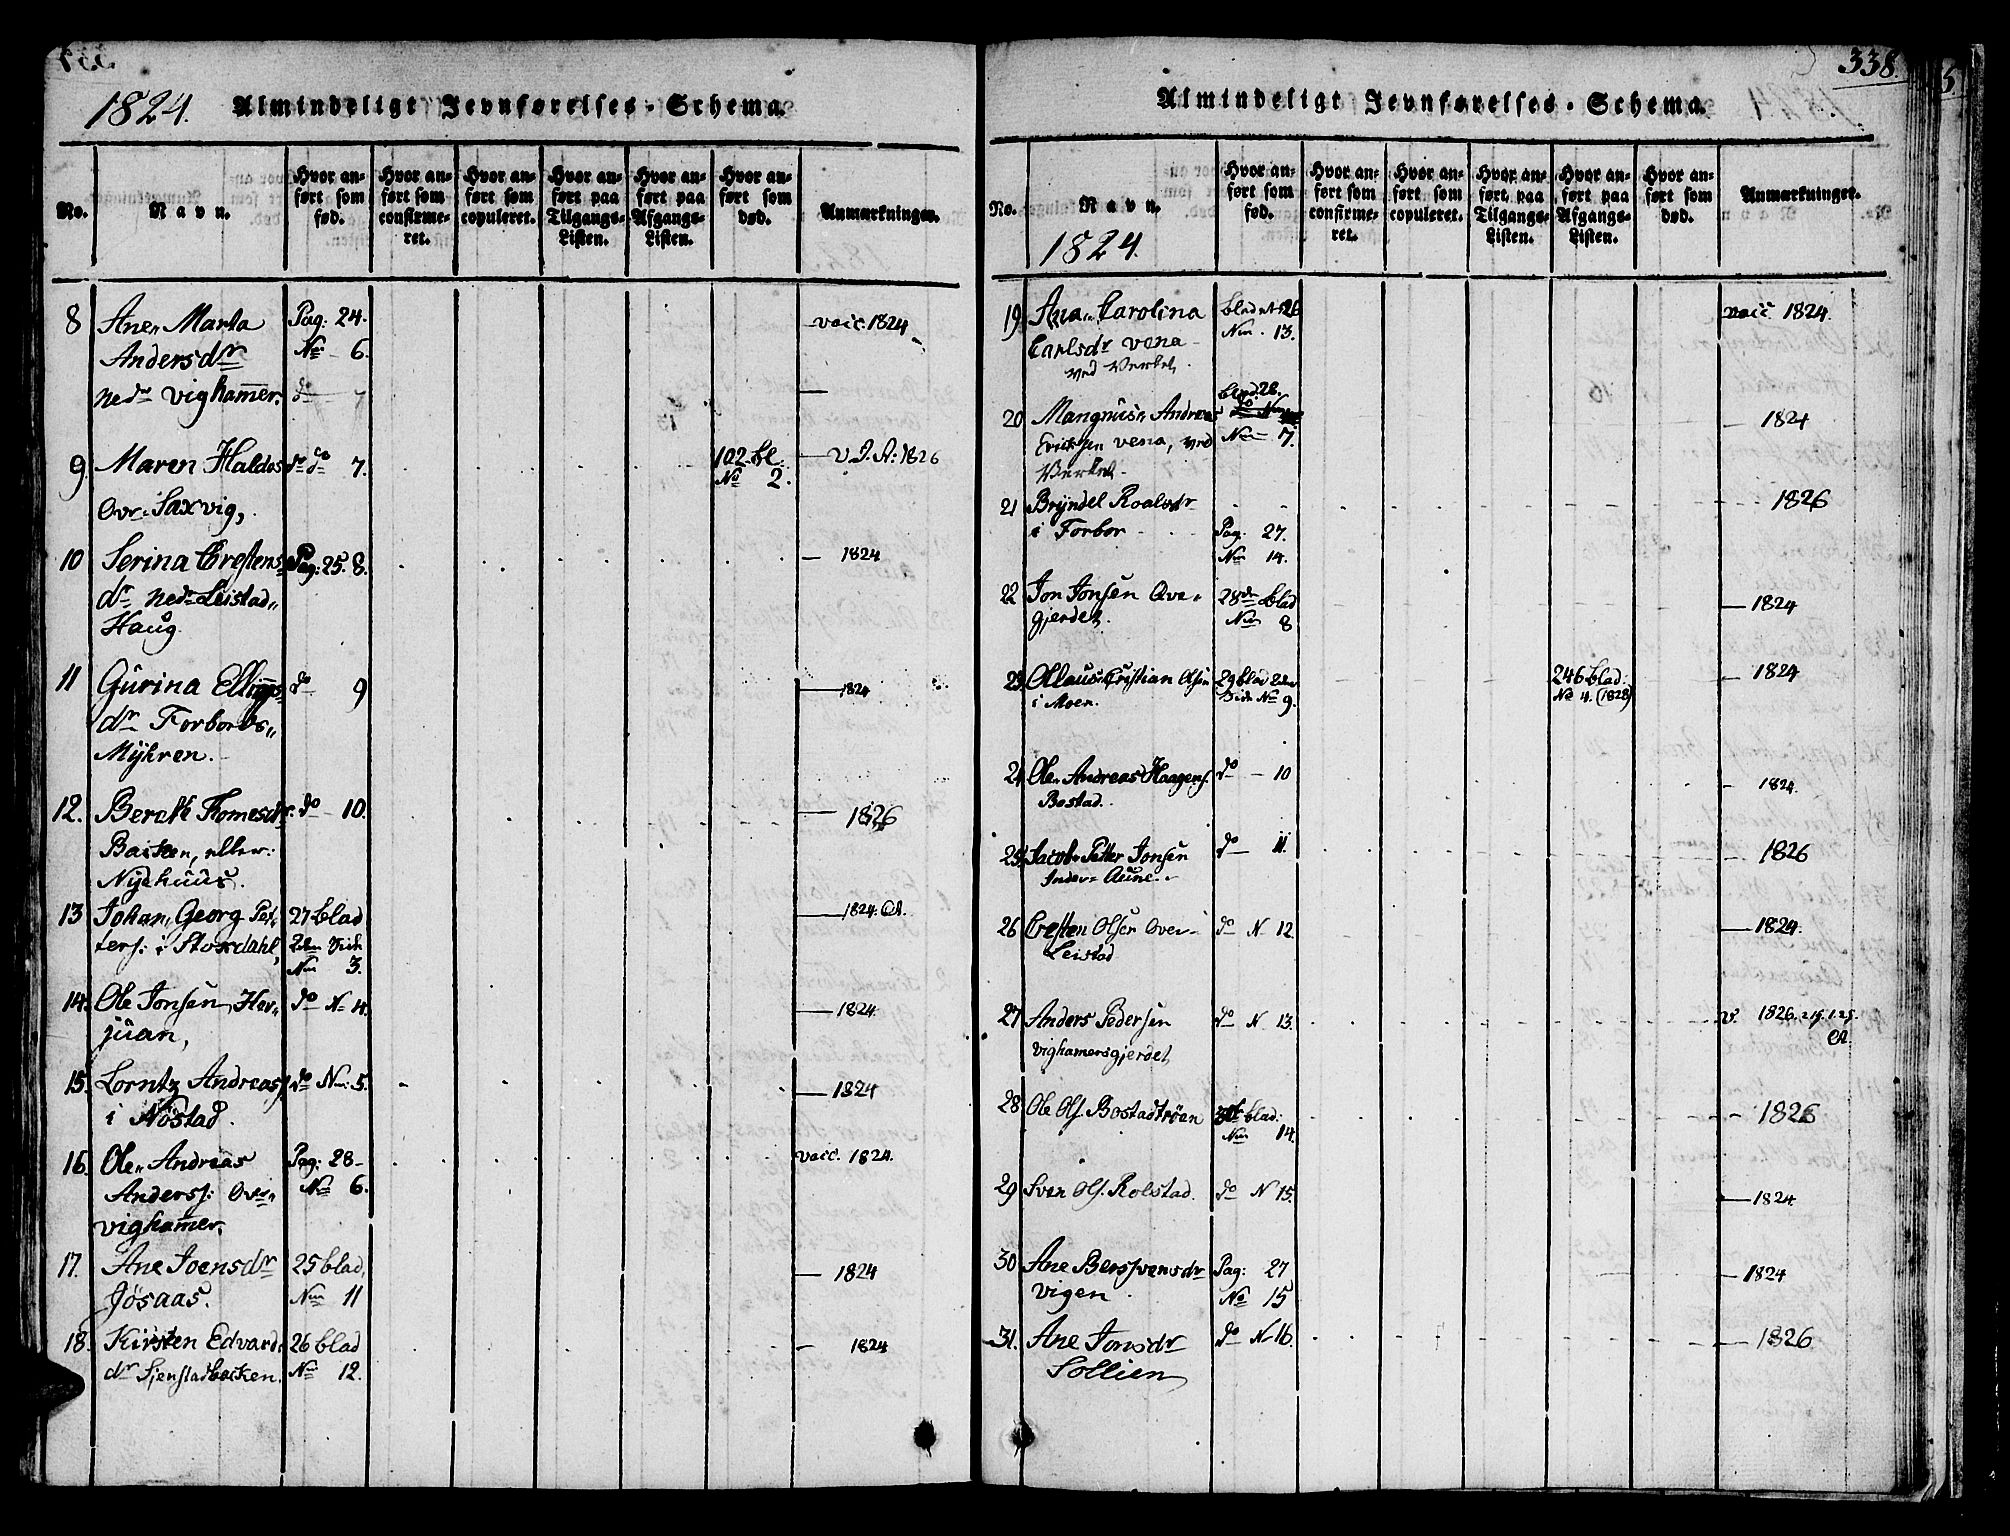 1824. Almindeligt Jevnførelses-Schema.
No. Navn. Hvor anført som fød. Hvor anført som confirmeret. Hvor anført som copuleret. Hvor anført paa Tilgangs-Listen. Hvor anført paa Afgangs-Listen. Hvor anført som død. Anmærkninger.
8 Ane Marta Pag: 24. vacc. 1824
Andersdr No 6.
nedr Vighamer. do 7
9 Maren Haldos dr do 7. 102 bl. V. I. A: 1826
Ovr Saxvig, No 2.
10 Serina Crestens Pag: 25. 8. 1824
dr nedr Leistad
Haug.
11 Gurina Ellings do 9 1824
dr Forbords
Myhren.
12. Bereth Thomesdr do 10. 1826
Backen, eller:
Nyehuus.
13 Johan Georg Pet- 27 blad 1824. A.
ters: i Stordahl, 2den Side
Num 3.
14. Ole Jonsen, Her- do N 4. 1824
juan,
15. Lorntz Andreas do Nm: 5. 1824
i Nøstad.
16. Ole Andreas Pag: 28 vacc. 1824.
Anders: Ovr Nm 6.
vighamer.
17. Ane Joensdr 25 blad, 1824
Jøsaas. Nm 11
18. Kirsten Edvard 26 blad 1824
dr Sjenstadbacken. Nm 12.
338.
Almindeligt Jevnførelses-Schema.
No. Navn. Hvor anført som fød. Hvor anført som confirmeret. Hvor anført som copuleret. Hvor anført paa Tilgangs-Listen. Hvor anført paa Afgangs-Listen. Hvor anført som død. Anmærkninger.
1824.
19. Ana Carolina blad 26 vacc 1824.
Carlsdr vona Nm. 13.
ved Verket,
20 Mangnus Andreas blad: 28. 1824
Ericksen vona, ved Nm 7.
Verket
21 Bryndel Roalsdr 1826
i Forbor Pag. 27.
Nm 14.
22 Jon Jonsen Ove- 28de blad 1824
gjerdet. Nm 8
23. Ollaus Cristian Olsen 29 blad 246 blad: 1824
i Moen. Side No 9. No 4. (1828)
24 Ole Andreas Haagens. do 10 1824.
Bostad.
25 Jacob Petter Jonsen do 11. 1826
Inder Aune.
26 Cresten Olsen Over- do N 12. 1824.
Leistad
27 Anders Pedersen do N 13. v. 1826.
vighamersgjerdet A.
28 Ole Ols. Bostadtrøen blad: 1826
Nm 14.
29 Sven Ols. Rolstad. do N 15. 1824
30 Ane Bersvensdr Pag: 27 1824
vigen. No 15
31. Ane Jonsdr do N 16. 1826
Sollien